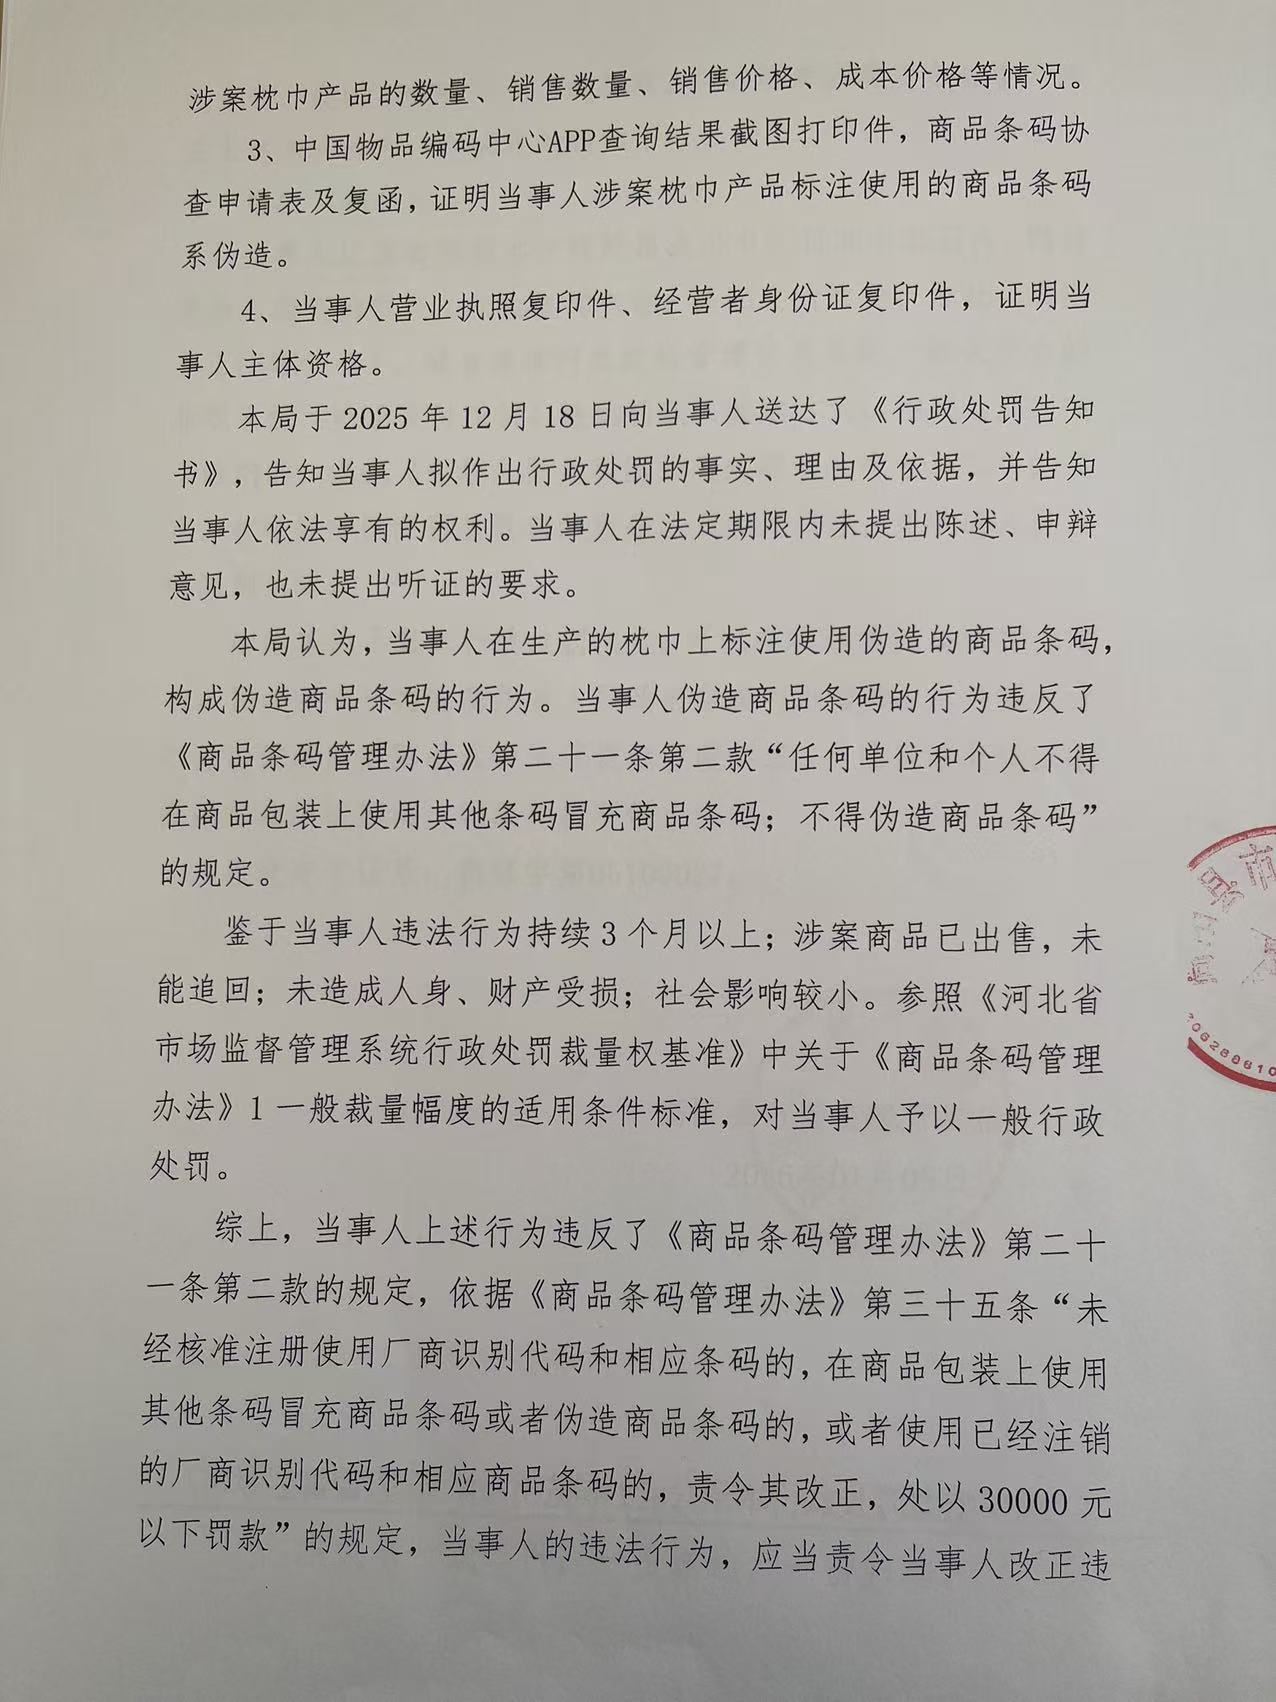 涉案枕巾产品的数量、销售数量、销售价格、成本价格等情况。
3、中国物品编码中心APP查询结果截图打印件，商品条码协
查申请表及复函，证明当事人涉案枕巾产品标注使用的商品条码
系伪造。
4、当事人营业执照复印件、经营者身份证复印件，证明当
事人主体资格。
本局于 2025 年 12 月 18 日向当事人送达了《行政处罚告知
书》，告知当事人拟作出行政处罚的事实、理由及依据，并告知
当事人依法享有的权利。当事人在法定期限内未提出陈述、申辩
意见，也未提出听证的要求。
本局认为，当事人在生产的枕巾上标注使用伪造的商品条码，
构成伪造商品条码的行为。当事人伪造商品条码的行为违反了
《商品条码管理办法》第二十一条第二款“任何单位和个人不得
在商品包装上使用其他条码冒充商品条码；不得伪造商品条码”
的规定。
鉴于当事人违法行为持续 3 个月以上；涉案商品已出售，未
能追回；未造成人身、财产受损；社会影响较小。参照《河北省
市场监督管理系统行政处罚裁量权基准》中关于《商品条码管理
办法》1 一般裁量幅度的适用条件标准，对当事人予以一般行政
处罚。
综上，当事人上述行为违反了《商品条码管理办法》第二十
一条第二款的规定，依据《商品条码管理办法》第三十五条“未
经核准注册使用厂商识别代码和相应条码的，在商品包装上使用
其他条码冒充商品条码或者伪造商品条码的，或者使用已经注销
的厂商识别代码和相应商品条码的，责令其改正，处以 30000 元
以下罚款”的规定，当事人的违法行为，应当责令当事人改正违